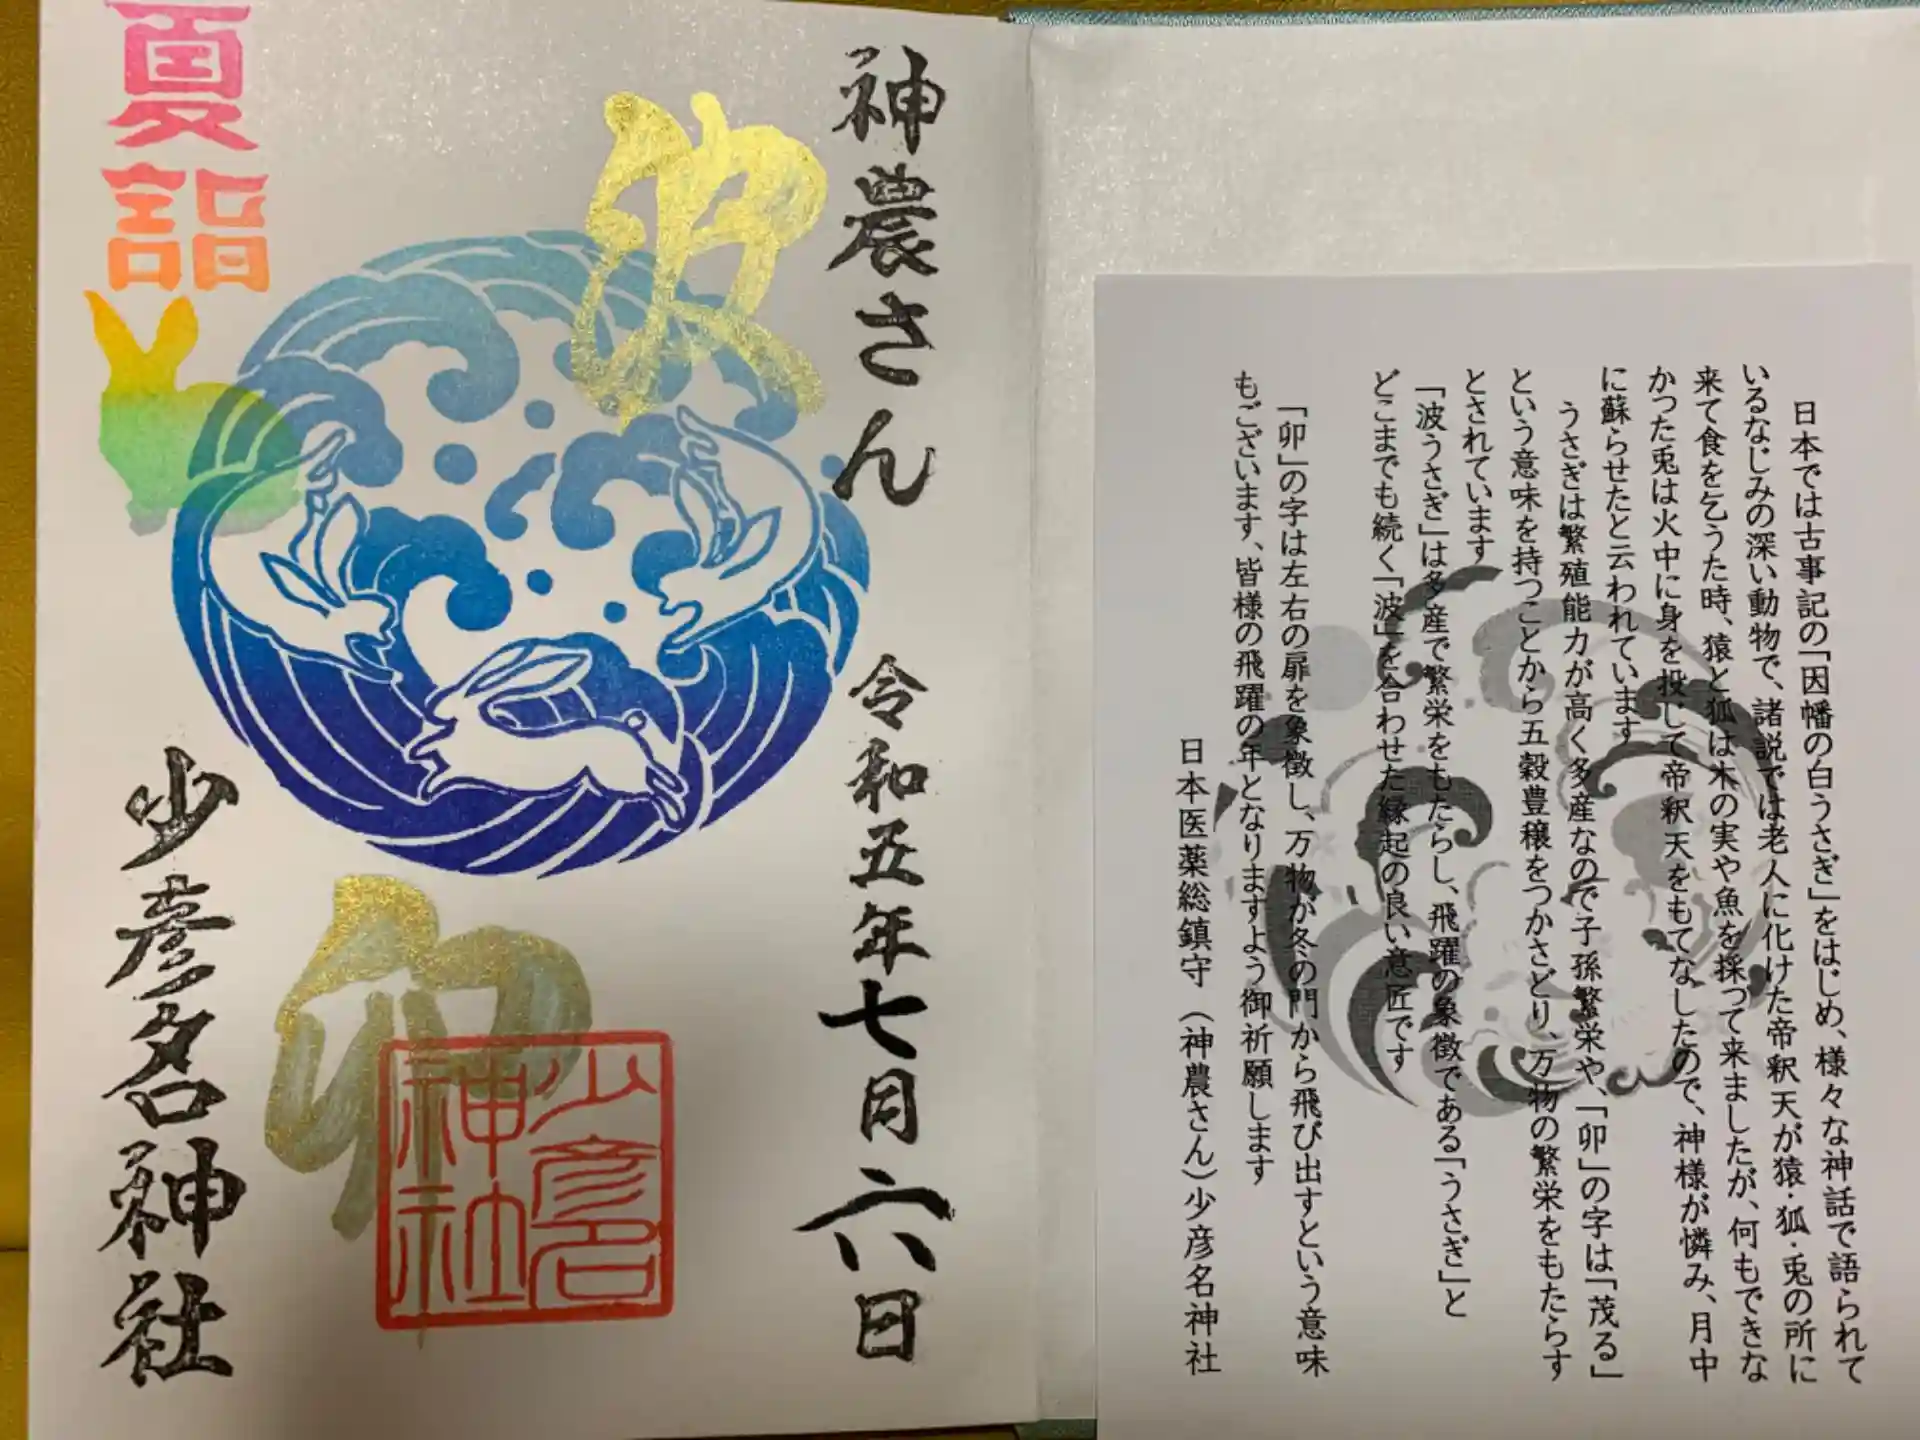 日本では古事記の「因幡の白うさぎ」をはじめ、様々な神話で語られて
いるなじみの深い動物で、諸説では老人に化けた帝釈天が猿・狐・兎の所に
来て食を乞うた時、猿と狐は木の実や魚を採って来ましたが、何もできな
かった兎は火中に身を投じて帝釈天をもてなしたので、神様が憐み、月中
に蘇らせたと云われています
うさぎは繁殖能力が高く多産なので子孫繁栄や、「卯」の字は「茂る」
という意味を持つことから五穀豊穣をつかさどり、万物の繁栄をもたらす
とされています
「波うさぎ」は多産で繁栄をもたらし、飛躍の象徴である「うさぎ」と
どこまでも続く「波」を合わせた縁起の良い意匠です
「卯」の字は左右の扉を象徴し、万物が冬の門から飛び出すという意味
もございます、皆様の飛躍の年となりますよう御祈願します
日本医薬総鎮守（神農さん）少彦名神社
神農さん
令和五年七月六日
波
卯
少彦名
神社
夏詣
少彦名神社